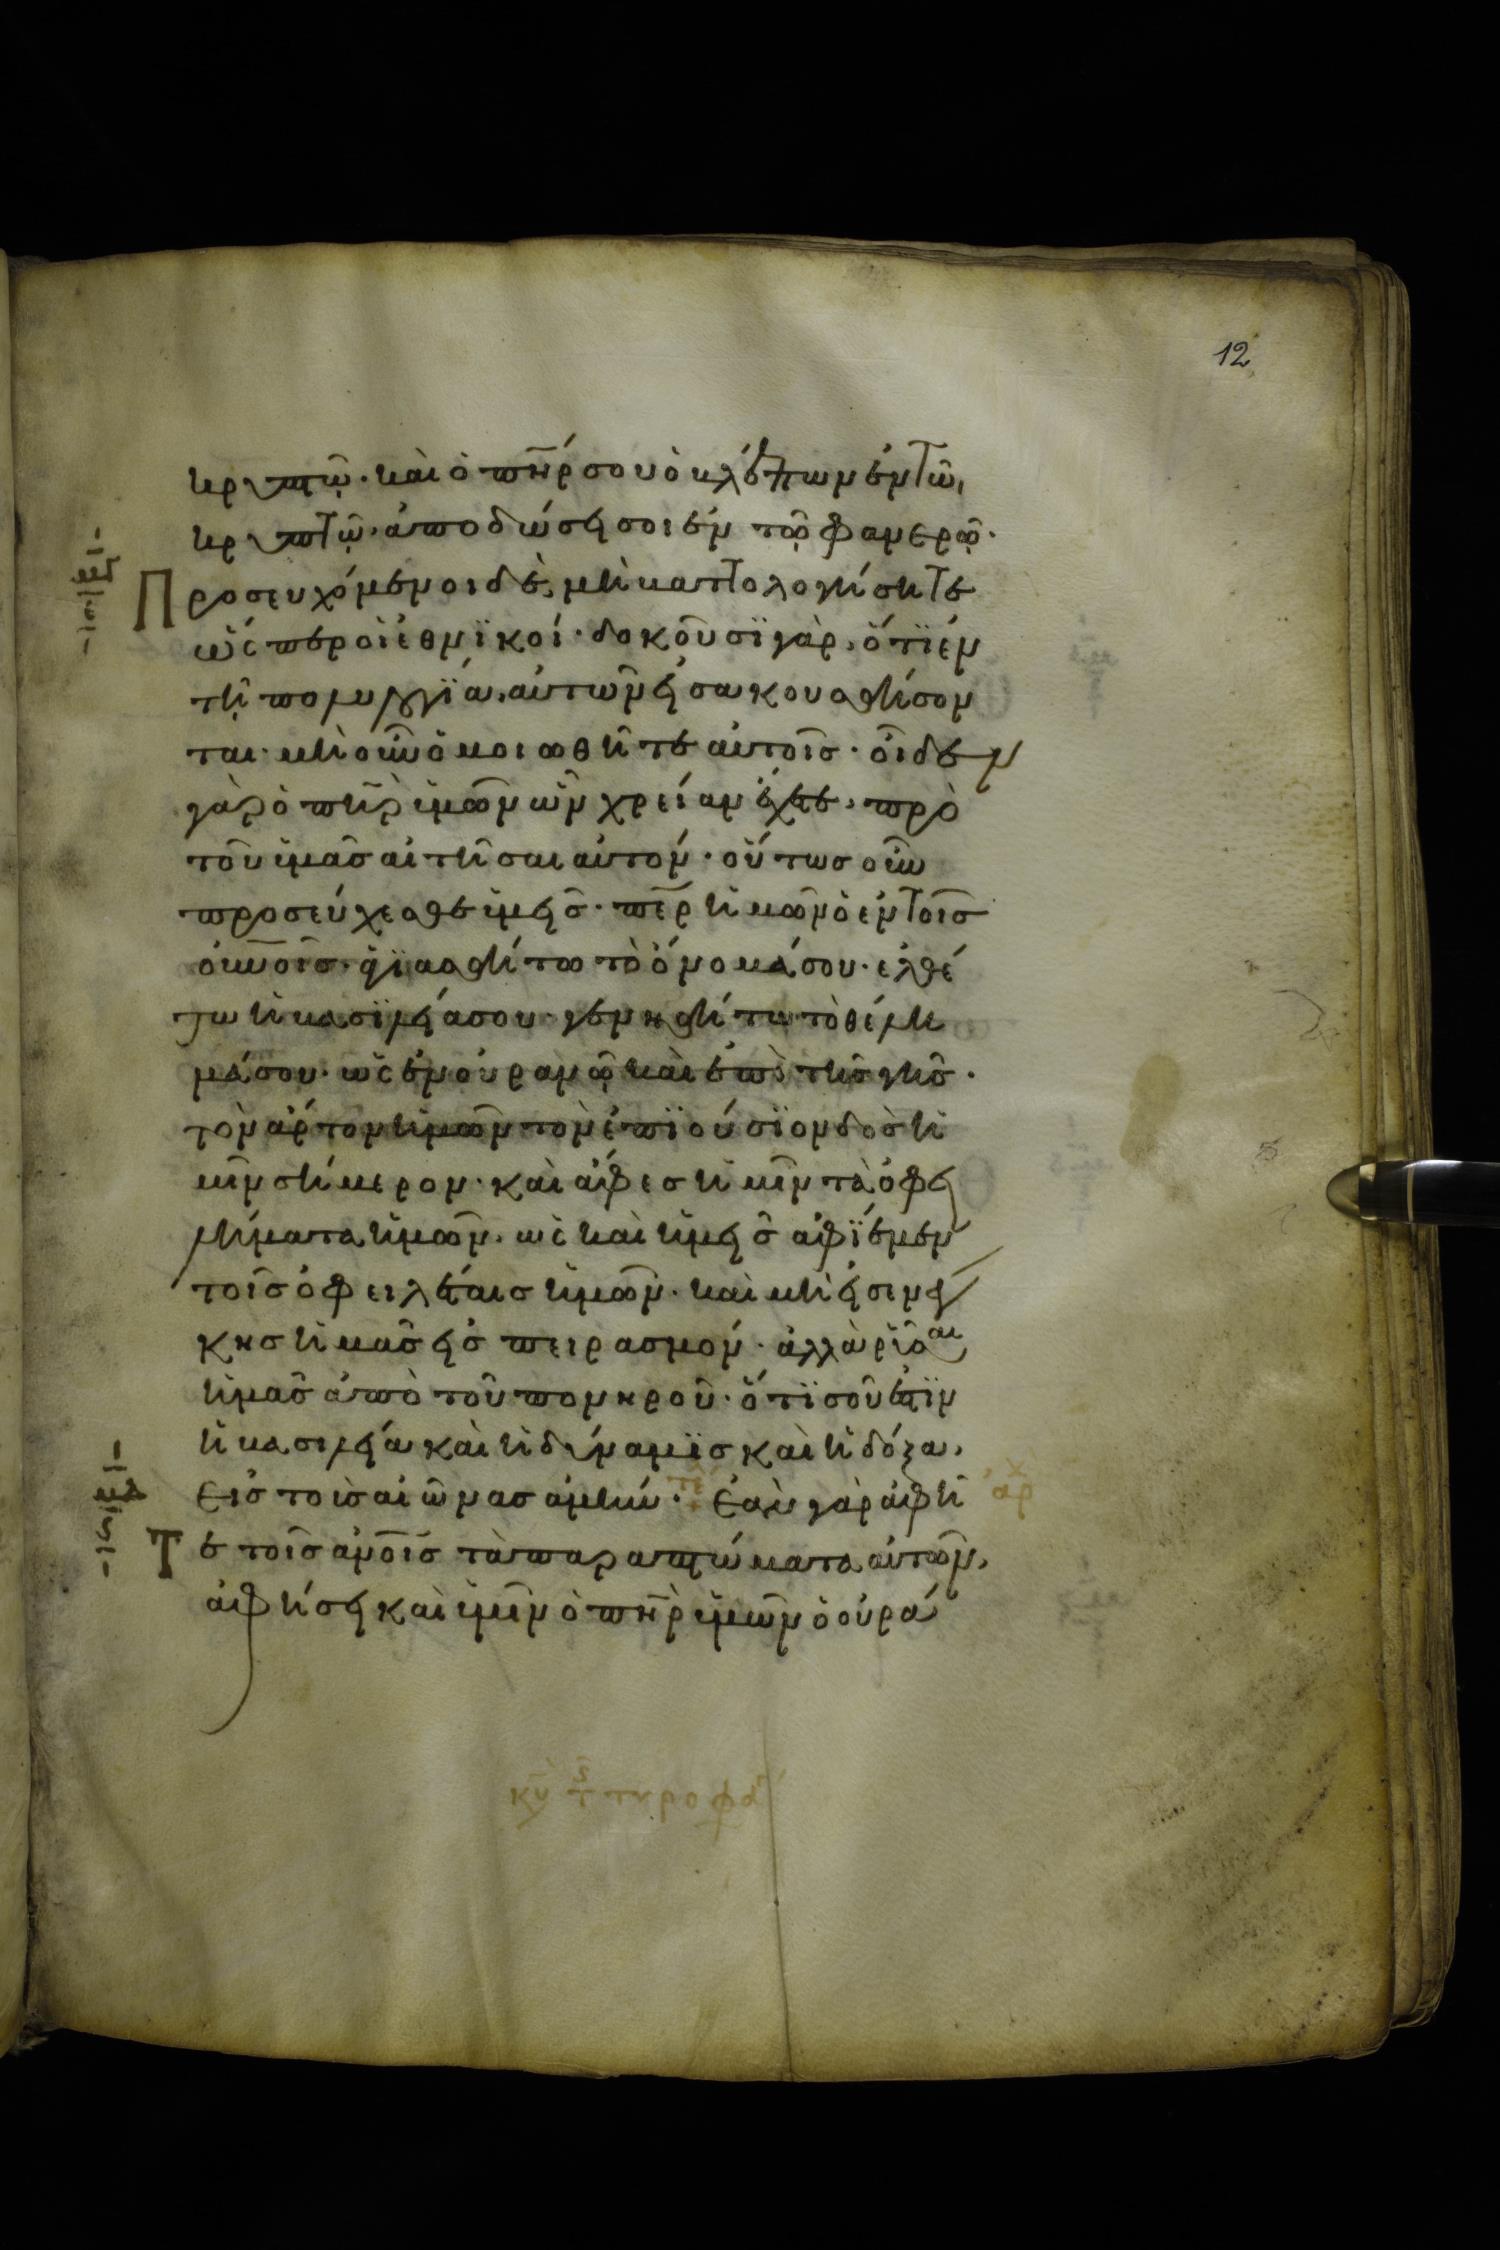 12
κρυπτῶ· καὶ ὁ πη̅ρ σου ὁ βλέπων ἐν τῶ
κρυπτῶ, ἀποδώσει σοι ἐν τῶ φανερῶ·
Προσευχόμενοι δὲ, μὴ βαττολογήσητε
ὥσπερ οἱ ἐθνϊκοί· δοκοῦσϊ γὰρ, ὅτϊ ἐν
τῆ πολυλογΐα αὐτῶν εἰσακουσθήσον
ται· μὴ οὖν ὁμοιωθῆτε αὐτοῖς· οἶδεν
γὰρ ὁ πη̅ρ ὑμῶν ὧν χρείαν ἔχετε, πρὸ
τοῦ ὑμᾶς αἰτῆσαι αὐτόν· οὕτως οὖν
προσεύχεσθε ὑμεῖς· πε̅ρ ἡμῶν ὁ ἐν τοῖς
οὐνοῖς· ἁγϊασθήτω τὸ ὄνομά σου· ἐλθέ
τω ἡ βασϊλεία σου· γενηθήτω τὸ θέλη
μά σου· ὡς ἐν οὐρανῶ καὶ ἐπὶ τῆς γῆς·
τὸν ἄρτον ἡμῶν τὸν ἐπϊούσϊον δὸς ἡ
μῖν σήμερον· καὶ ἄφες ἡμῖν τὰ ὀφει
λήματα ἡμῶν, ὡς καὶ ἡμεῖς ἀφΐεμεν
τοῖς ὀφειλέταις ἡμῶν· καὶ μὴ εἰσενέγ
κης ἡμᾶς εἰς πειρασμόν· ἀλλὰ ῥῦσαι
ἡμᾶς ἀπὸ τοῦ πονηροῦ· ὅτϊ σοῦ ἐστϊν
ἡ βασιλεία καὶ ἡ δύναμϊς καὶ ἡ δόξα,
εἰς τοὺς αἰῶνας ἀμήν· τε ἐὰν γὰρ ἀφῆ αρχ
Τε τοῖς ἀνοῖς τὰ παραπτώματα αὐτῶν,
ἀφήσει καὶ ὑμῖν ὁ πη̅ρ ὑμῶν ὁ οὐρά
κυ τ τυροφά